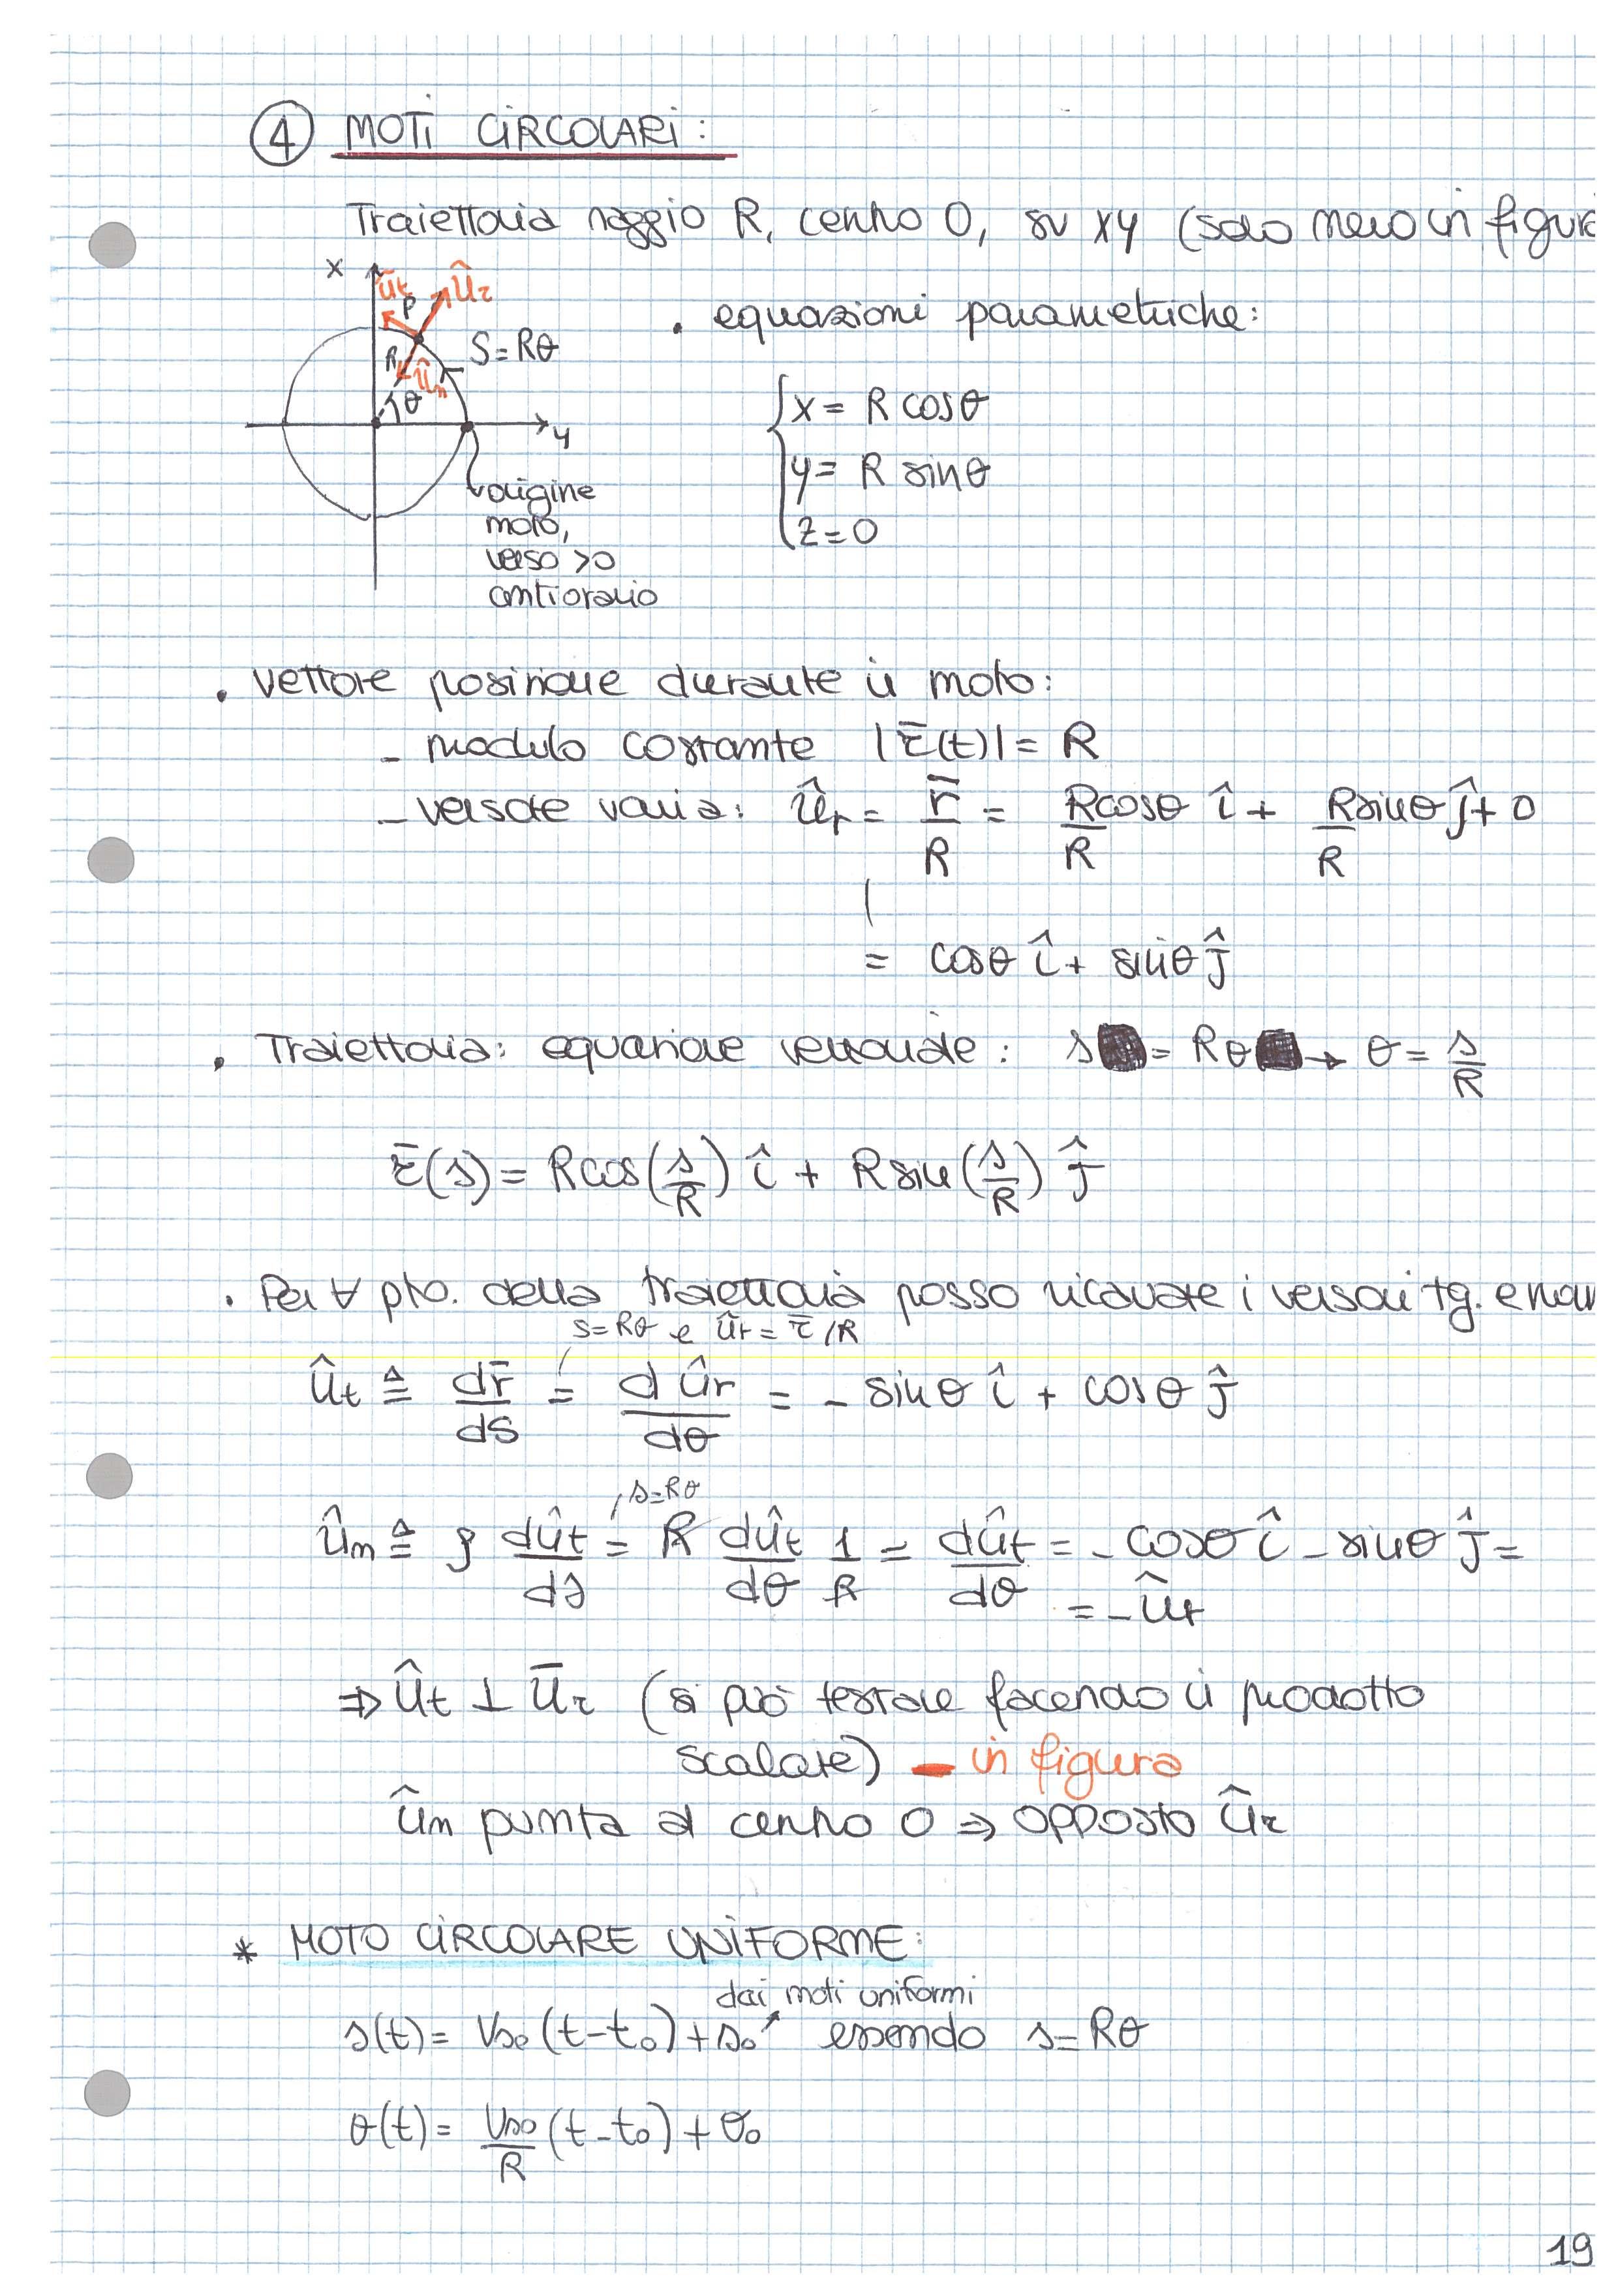 ④ MOTI CIRCOLARI:
Traiettoria raggio R, centro O, su xy (solo nero in figura
x
ût
P
ûr
S=Rθ
R
ûn
θ
y
origine
moto,
verso >0
antiorario
• equazioni parametriche:
x = R cosθ
y = R sinθ
z = 0
• vettore posizione durante il moto:
- modulo costante |r̄(t)| = R
- versore varia: ûr = r̄/R = Rcosθ/R î + Rsinθ/R ĵ + 0
= cosθ î + sinθ ĵ
• Traiettoria: equazione vettoriale: s = Rθ → θ = s/R
r̄(s) = Rcos(s/R) î + Rsin(s/R) ĵ
• Per ∀ pto. della traiettoria posso ricavare i versori tg. e nor
s=Rθ e ûr = r̄/R
ût ≜ dr̄/ds = dûr/dθ = - sinθ î + cosθ ĵ
s=Rθ
ûn ≜ ρ dût/ds = R dût/dθ 1/R = dût/dθ = - cosθ î - sinθ ĵ =
= - ûr
⇒ ût ⊥ ūr (si può testare facendo il prodotto
scalare) - in figura
ûn punta al centro O ⇒ opposto ûr
* MOTO CIRCOLARE UNIFORME:
dai moti uniformi
s(t) = Vso (t-t₀) + s₀ essendo s=Rθ
θ(t) = Vso/R (t-t₀) + θ₀
19